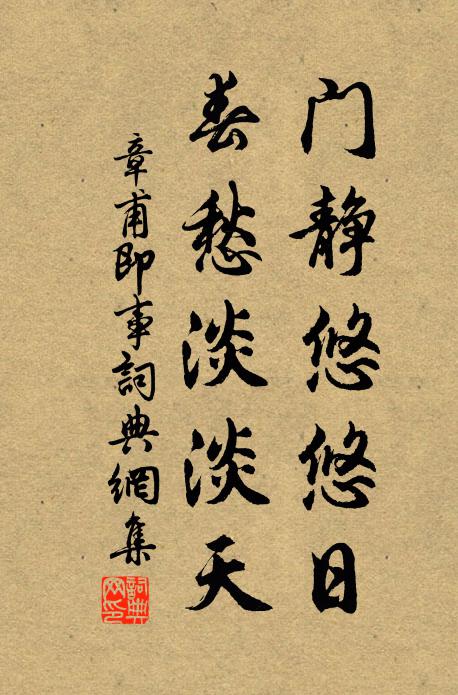 门静悠悠日
春愁淡淡天
章甫即事詞典網集
詞典网印